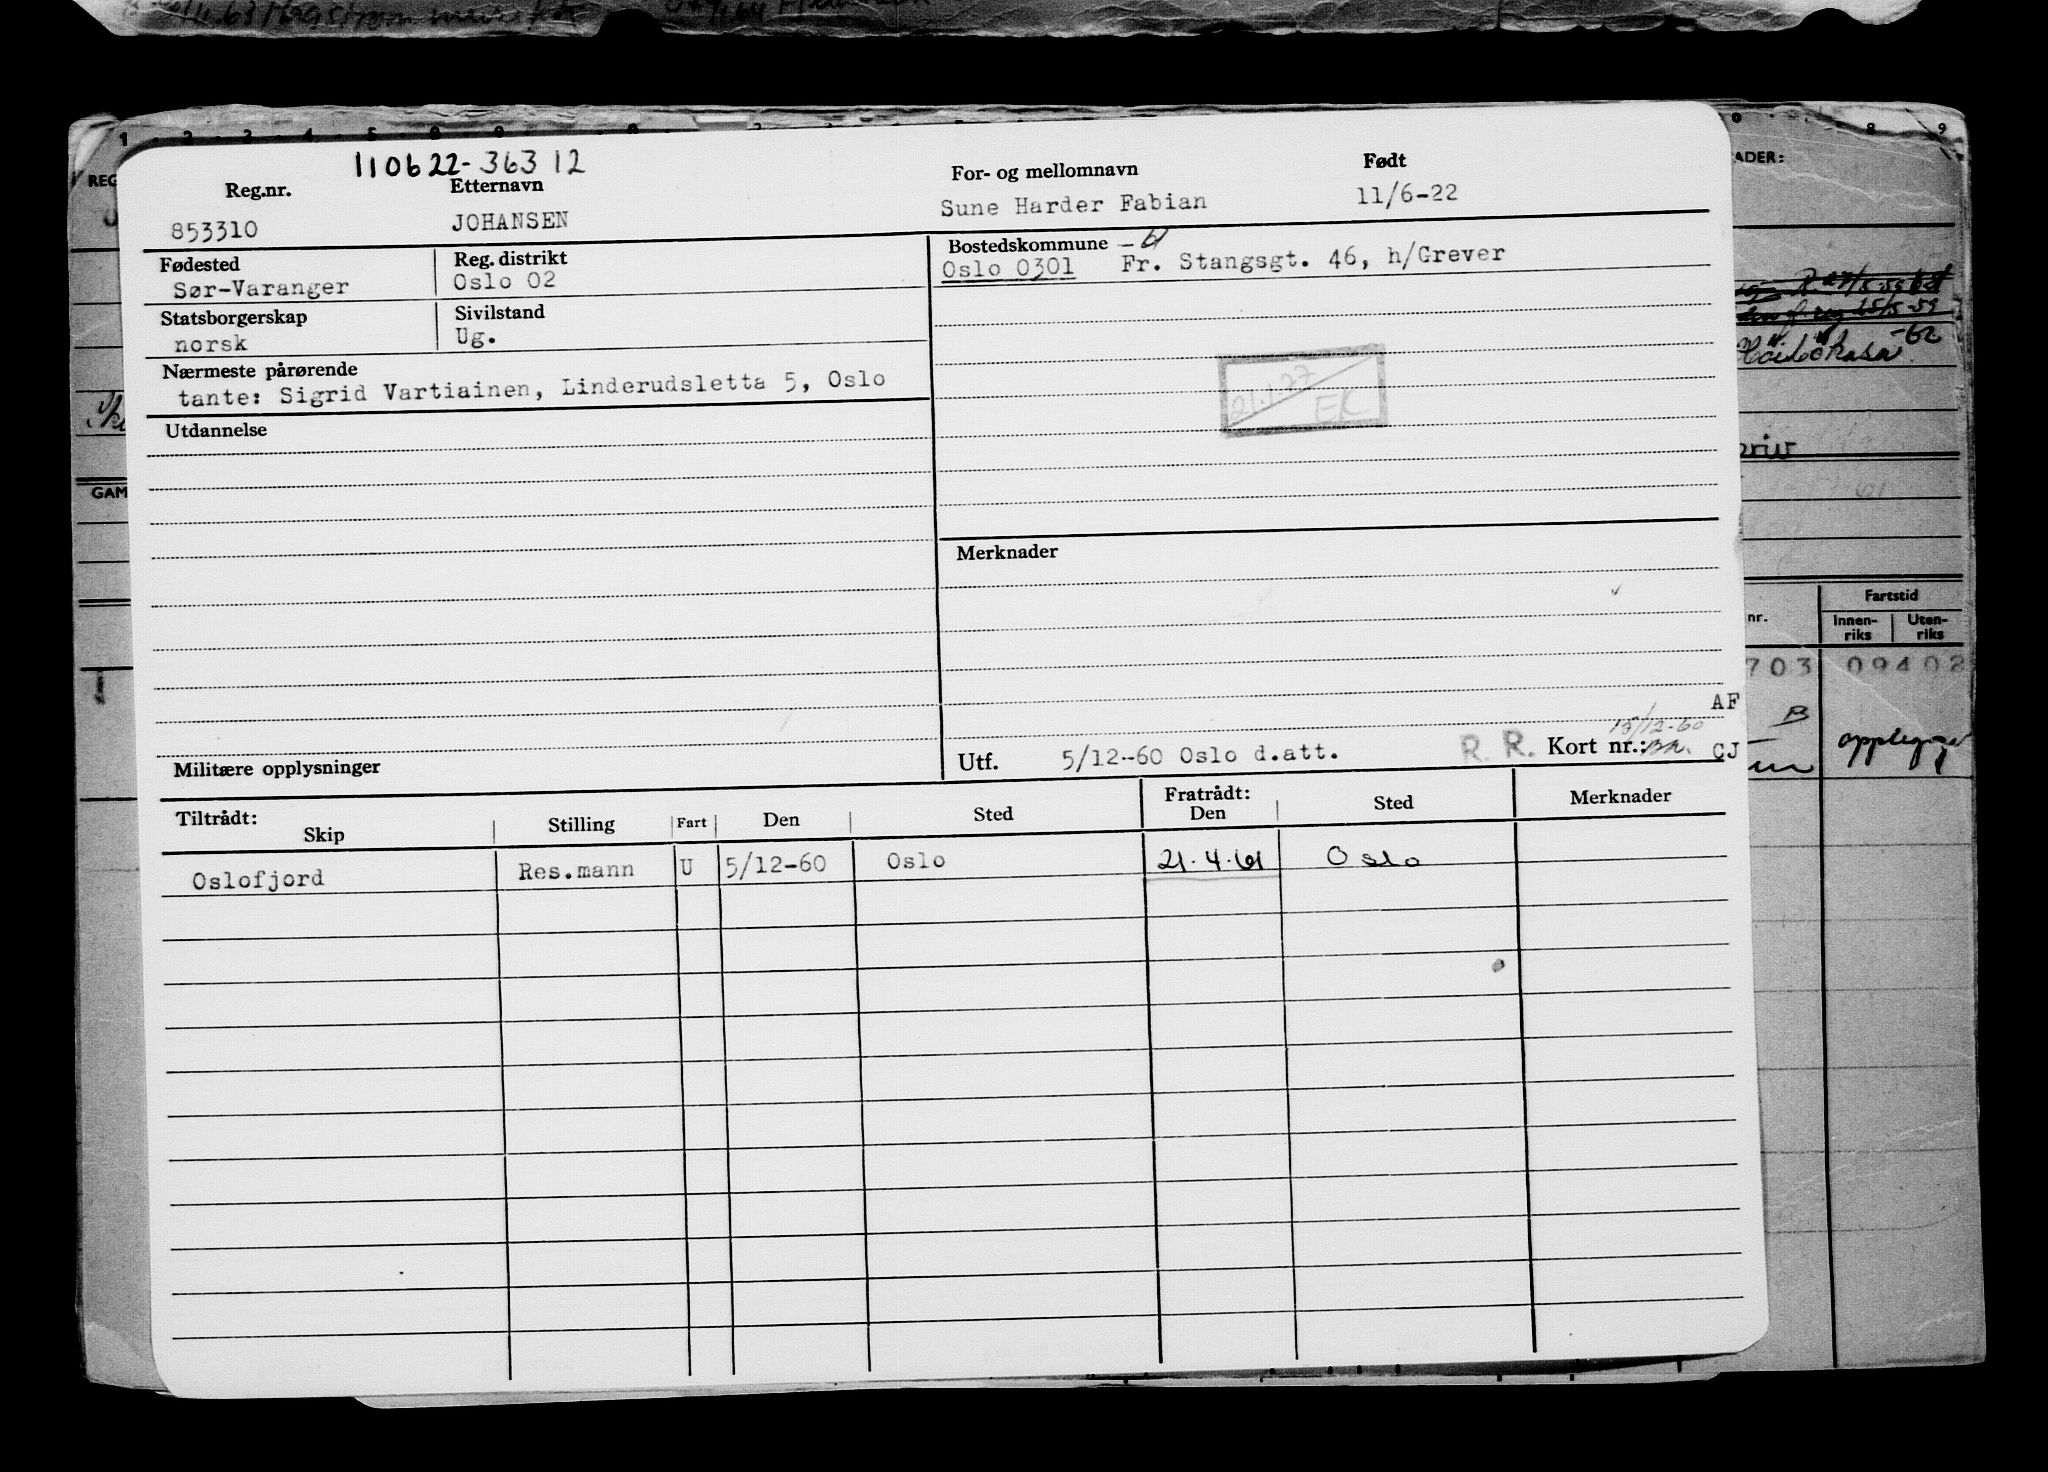 110622-36312
Reg.nr. Etternavn For- og mellomnavn Født
853310 JOHANSEN Sune Harder Fabian 11/6-22
Fødested Reg. distrikt
Sør-Varanger Oslo 02
Statsborgerskap Sivilstand
norsk Ug.
Nærmeste pårørende
tante: Sigrid Vartiainen, Linderudsletta 5, Oslo
Utdannelse
Militære opplysninger
Bostedskommune -61
Oslo 0301 Fr. Stangsgt. 46, h/Grever
21.1.27
EK
Merknader
AF
15/12-60
Utf. 5/12-60 Oslo d.att. R. R. Kort nr.: CJ
Tiltrådt: Fratrådt:
Skip Stilling Fart Den Sted Den Sted Merknader
Oslofjord Res.mann U 5/12-60 Oslo 21.4.61 Oslo
REG
GAM
ADER:
-62
Fartstid
nr. Innen-riks Uten-riks
703 09402
B